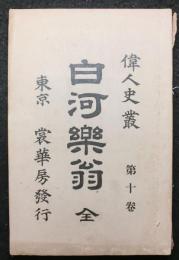 偉人史叢 第十卷
白河樂翁 全
東京 裳華房發行